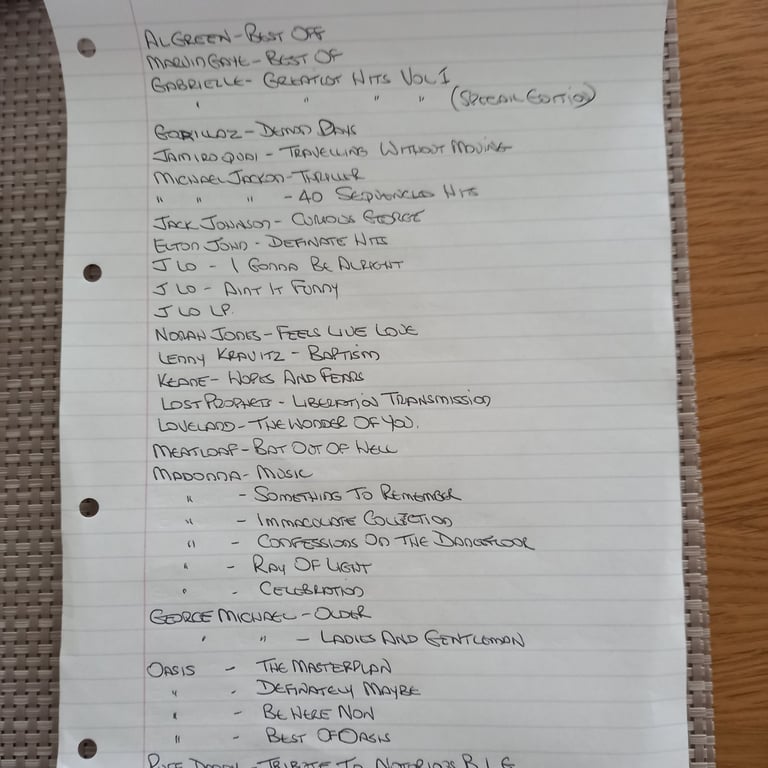 AL GREEN - BEST OFF
MARVIN GAYE - BEST OF
GABRIELLE - GREATEST HITS VOL 1
" " " " (SPECIAL EDITION)
GORILLAZ - DEMON DAYS
JAMIROQUAI - TRAVELLING WITHOUT MOVING
MICHAEL JACKSON - THRILLER
" " " - 40 SEQUENCED HITS
JACK JOHNSON - CURIOUS GEORGE
ELTON JOHN - DEFINATE HITS
J LO - I GONNA BE ALRIGHT
J LO - AINT IT FUNNY
J LO LP.
NORAH JONES - FEELS LIKE LOVE
LENNY KRAVITZ - BAPTISM
KEANE - HOPES AND FEARS
LOSTPROPHETS - LIBERATION TRANSMISSION
LOVELAND - THE WONDER OF YOU.
MEATLOAF - BAT OUT OF HELL
MADONNA - MUSIC
" - SOMETHING TO REMEMBER
" - IMMACULATE COLLECTION
" - CONFESSIONS ON THE DANCEFLOOR
" - RAY OF LIGHT
" - CELEBRATION
GEORGE MICHAEL - OLDER
" " - LADIES AND GENTLEMAN
OASIS - THE MASTERPLAN
" - DEFINATELY MAYBE
" - BE HERE NOW
" - BEST OF OASIS
PUFF DADDY - TRIBUTE TO NOTORIOUS B.I.G